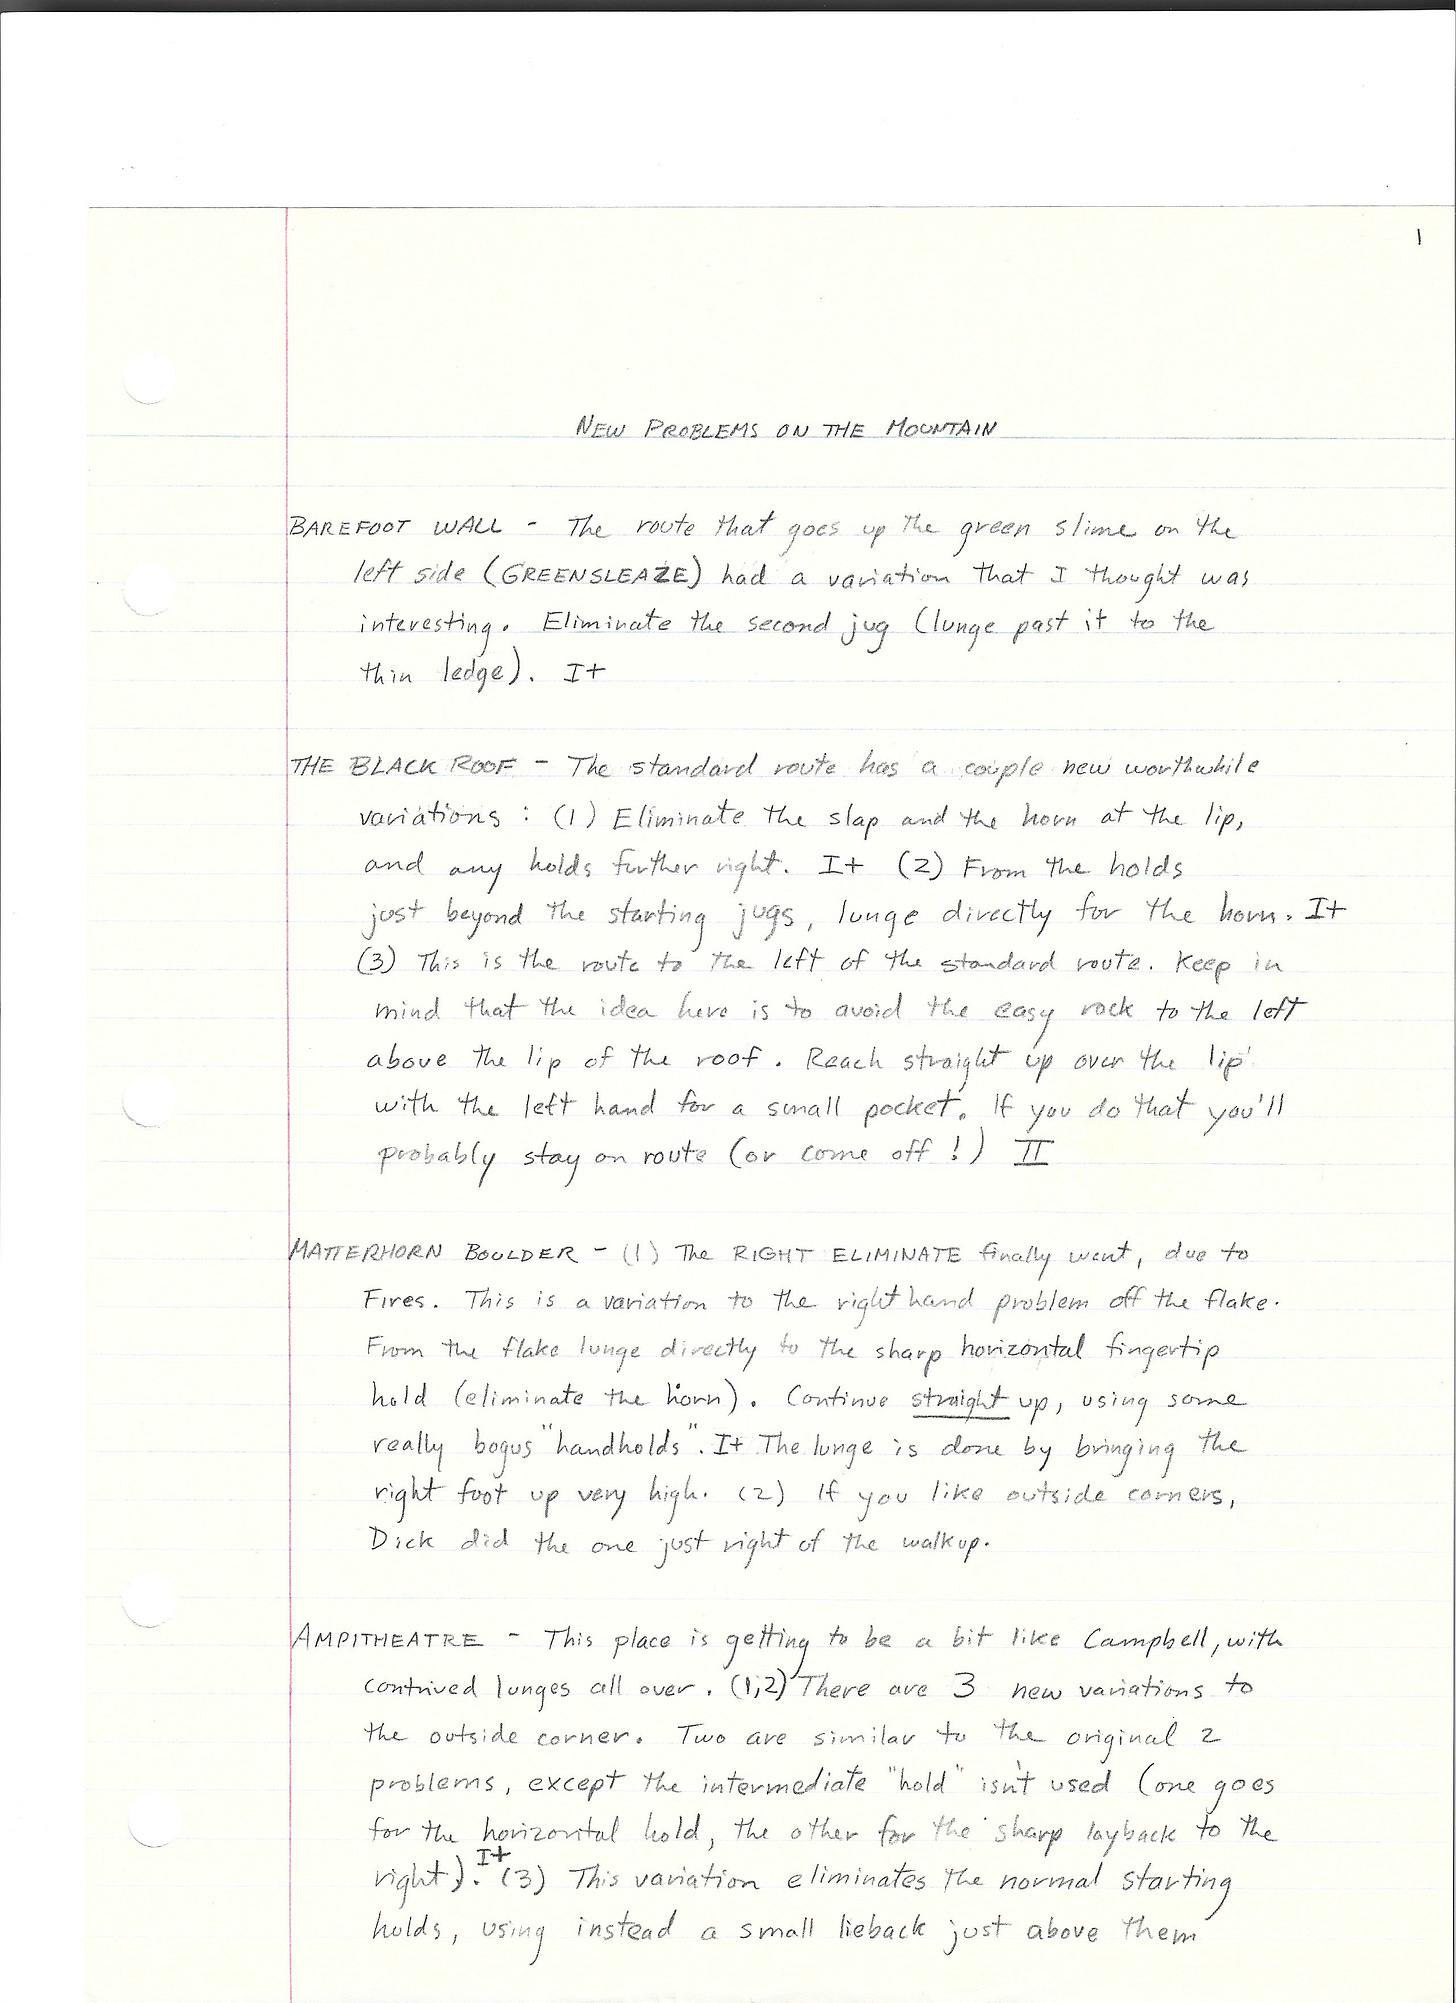 1
NEW PROBLEMS ON THE MOUNTAIN
BAREFOOT WALL - The route that goes up the green slime on the
left side (GREENSLEAZE) had a variation that I thought was
interesting. Eliminate the second jug (lunge past it to the
thin ledge). I+
THE BLACK ROOF - The standard route has a couple new worthwhile
variations : (1) Eliminate the slap and the horn at the lip,
and any holds further right. I+ (2) From the holds
just beyond the starting jugs, lunge directly for the horn. I+
(3) This is the route to the left of the standard route. Keep in
mind that the idea here is to avoid the easy rock to the left
above the lip of the roof. Reach straight up over the lip
with the left hand for a small pocket. If you do that you'll
probably stay on route (or come off !) II
MATTERHORN BOULDER - (1) The RIGHT ELIMINATE finally went, due to
Fires. This is a variation to the right hand problem off the flake.
From the flake lunge directly to the sharp horizontal fingertip
hold (eliminate the horn). Continue straight up, using some
really bogus "handholds". I+ The lunge is done by bringing the
right foot up very high. (2) If you like outside corners,
Dick did the one just right of the walkup.
AMPITHEATRE - This place is getting to be a bit like Campbell, with
contrived lunges all over. (1,2) There are 3 new variations to
the outside corner. Two are similar to the original 2
problems, except the intermediate "hold" isn't used (one goes
for the horizontal hold, the other for the sharp layback to the
right). I+ (3) This variation eliminates the normal starting
holds, using instead a small lieback just above them